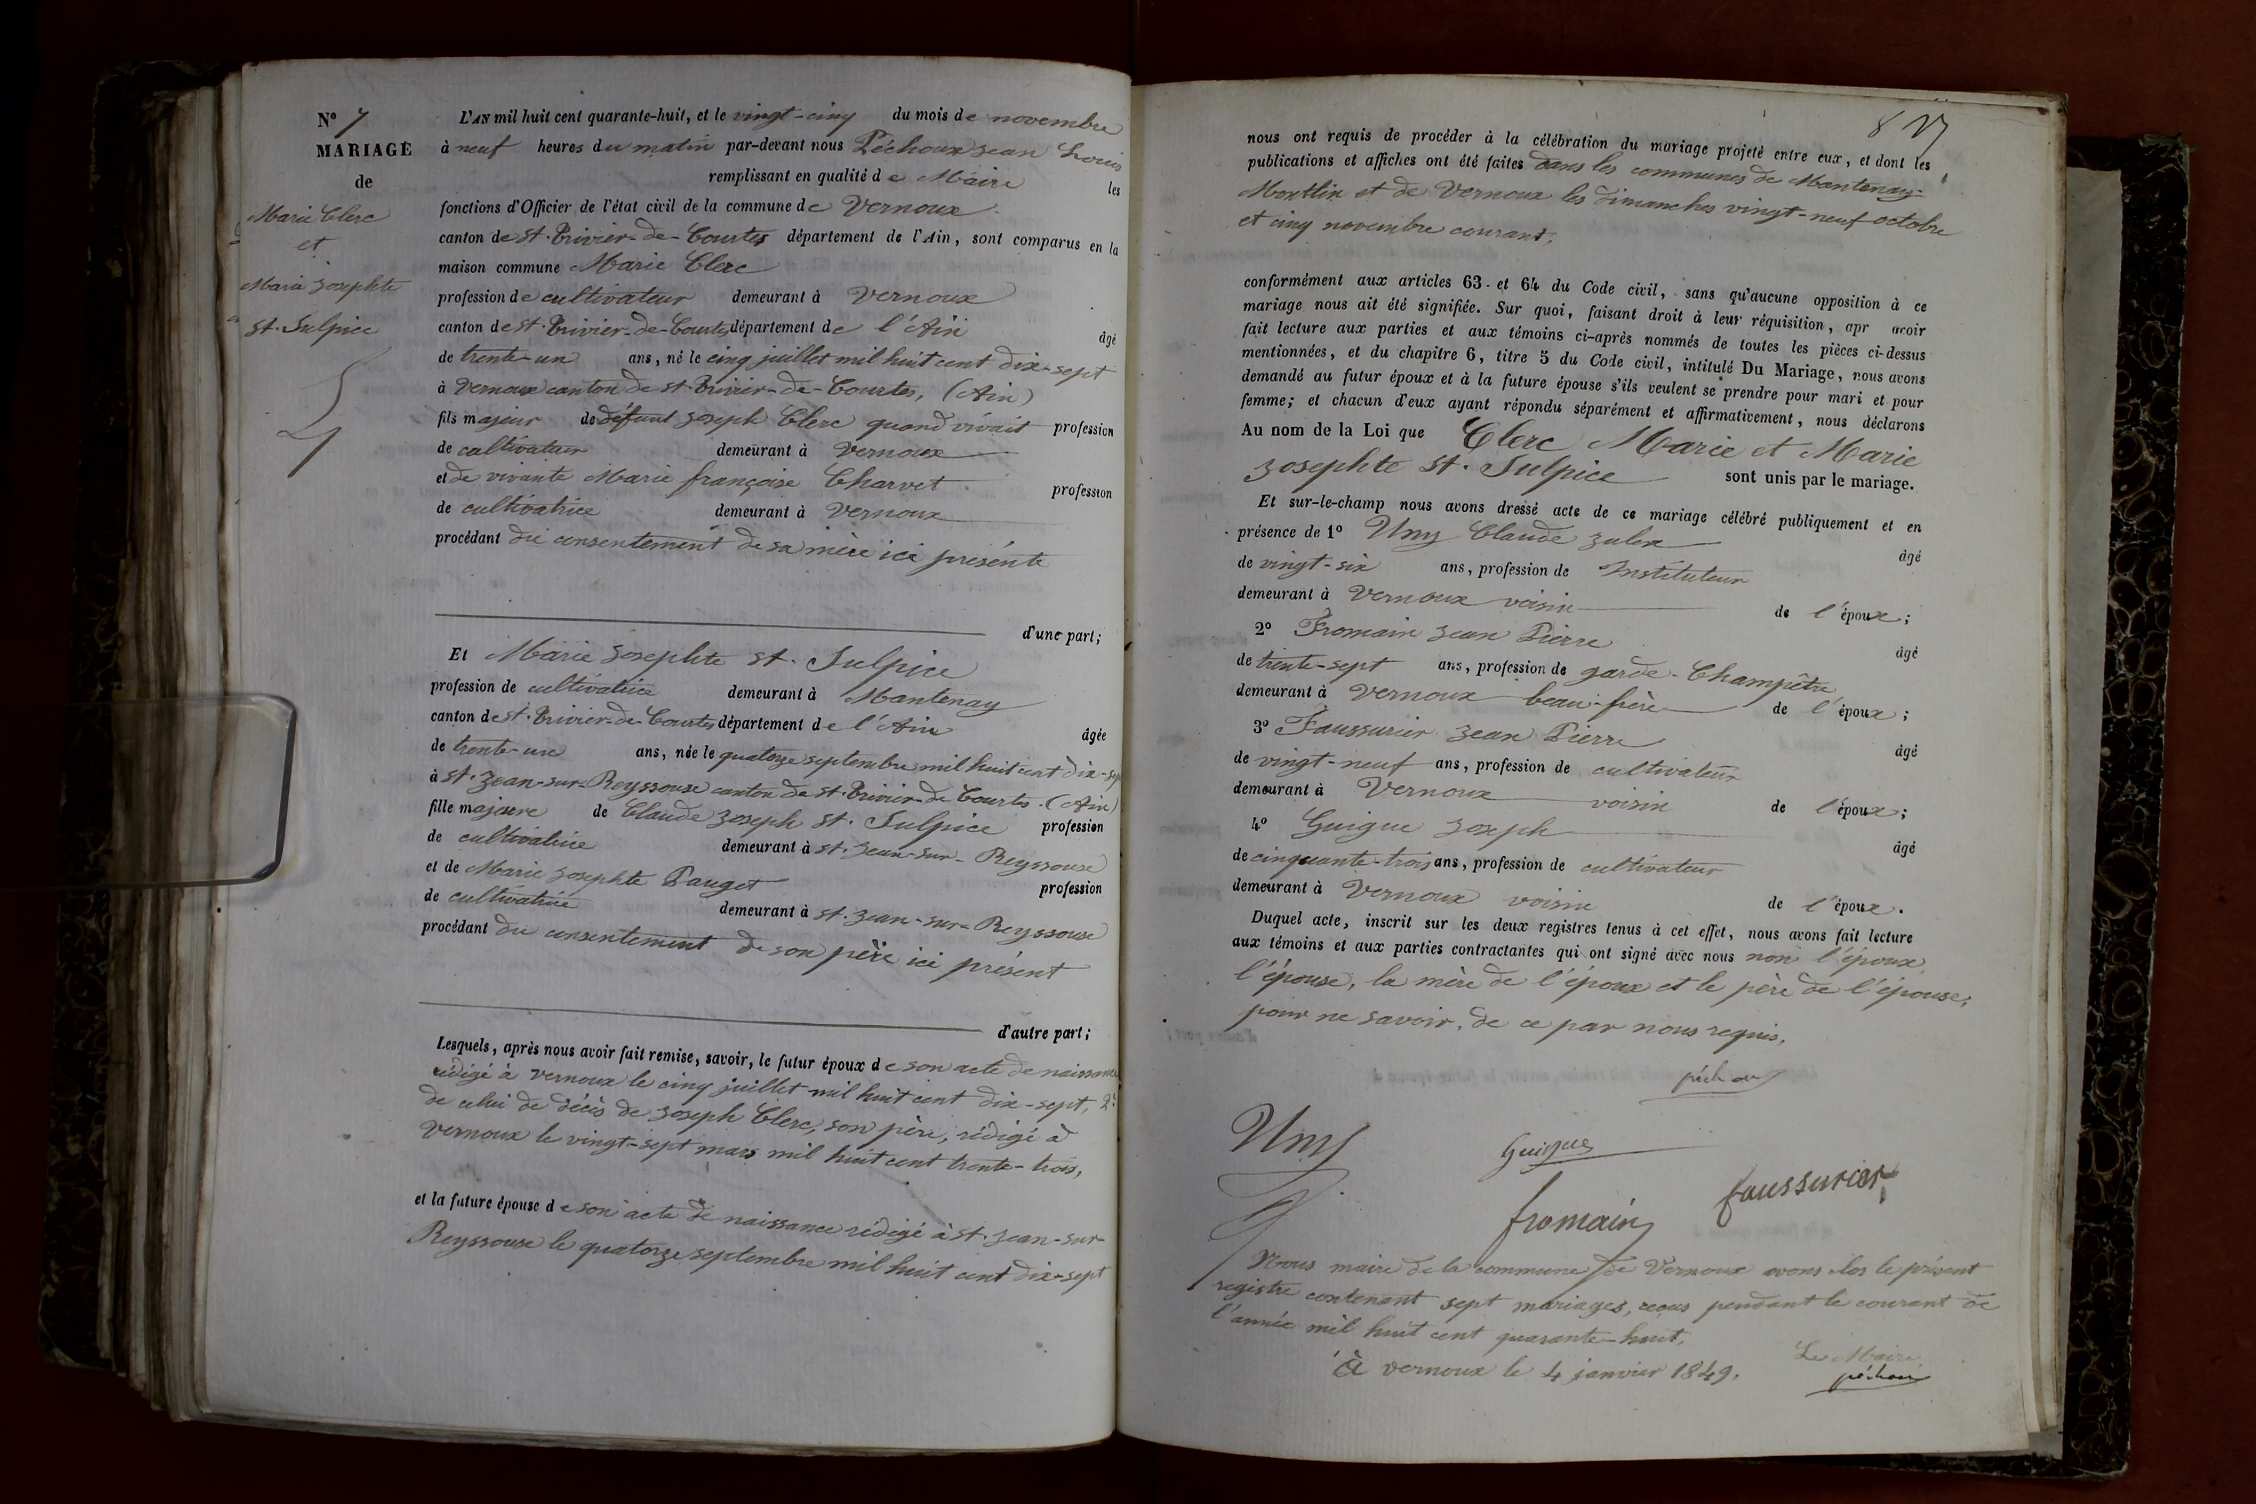 N° 7
MARIAGE
de
Marie Clerc
et
Marie Josephte
St. Sulpice
L'AN mil huit cent quarante-huit, et le vingt-cinq du mois de novembre
à neuf heures du matin par-devant nous Péchoux Jean Louis
remplissant en qualité de Maire les
fonctions d'Officier de l'état civil de la commune de Vernoux
canton de St. Trivier-de-Courtes département de l'Ain, sont comparus en la
maison commune Marie Clerc
profession de cultivateur demeurant à Vernoux
canton de St. Trivier-de-Courtes département de l'Ain âgé
de trente-un ans, né le cinq juillet mil huit cent dix-sept
à Vernoux canton de St. Trivier-de-Courtes, (Ain)
fils majeur de défunt Joseph Clerc quand vivait profession
de cultivateur demeurant à Vernoux
et de vivante Marie françoise Charvet profession
de cultivatrice demeurant à Vernoux
procédant du consentement de sa mère ici présente
d'une part;
Et Marie Josephte St. Sulpice
profession de cultivatrice demeurant à Mantenay
canton de St. Trivier-de-Courtes département de l'Ain âgée
de trente-un ans, née le quatorze septembre mil huit cent dix-sept
à St. Jean-sur-Reyssouse canton de St. Trivier-de-Courtes. (Ain)
fille majeure de Claude Joseph St. Sulpice profession
de cultivatrice demeurant à St. Jean-sur-Reyssouse
et de Marie Josephte Pauget profession
de cultivatrice demeurant à St. Jean-sur-Reyssouse
procédant du consentement de son père ici présent
d'autre part;
Lesquels, après nous avoir fait remise, savoir, le futur époux de son acte de naissance
rédigé à Vernoux le cinq juillet mil huit cent dix-sept, 2°
de celui de décès de Joseph Clerc, son père, rédigé à
Vernoux le vingt-sept mars mil huit cent trente-trois,
et la future épouse de son acte de naissance rédigé à St. Jean-sur-
Reyssouse le quatorze septembre mil huit cent dix-sept
nous ont requis de procéder à la célébration du mariage projeté entre eux, et dont les
publications et affiches ont été faites dans les communes de Mantenay-
Montlin et de Vernoux les dimanches vingt-neuf octobre
et cinq novembre courant,
conformément aux articles 63 et 64 du Code civil, sans qu'aucune opposition à ce
mariage nous ait été signifiée. Sur quoi, faisant droit à leur réquisition, apr avoir
fait lecture aux parties et aux témoins ci-après nommés de toutes les pièces ci-dessus
mentionnées, et du chapitre 6, titre 5 du Code civil, intitulé Du Mariage, nous avons
demandé au futur époux et à la future épouse s'ils veulent se prendre pour mari et pour
femme; et chacun d'eux ayant répondu séparément et affirmativement, nous déclarons
Au nom de la Loi que Clerc Marie et Marie
Josephte St. Sulpice sont unis par le mariage.
Et sur-le-champ nous avons dressé acte de ce mariage célébré publiquement et en
présence de 1° Uny Claude Julex âgé
de vingt-six ans, profession de Instituteur
demeurant à Vernoux voisin de l'époux;
2° Fromain Jean Pierre âgé
de trente-sept ans, profession de garde-Champêtre
demeurant à Vernoux beau-frère de l'époux;
3° Faussurier Jean Pierre âgé
de vingt-neuf ans, profession de cultivateur
demeurant à Vernoux voisin de l'époux;
4° Guigue Joseph âgé
de cinquante-trois ans, profession de cultivateur
demeurant à Vernoux voisin de l'époux.
Duquel acte, inscrit sur les deux registres tenus à cet effet, nous avons fait lecture
aux témoins et aux parties contractantes qui ont signé avec nous non l'époux,
l'épouse, la mère de l'époux et le père de l'épouse,
pour ne savoir, de ce par nous requis.
péchoux
Uny
Guigues
faussurier
fromain
Nous maire de la commune de Vernoux avons clos le présent
registre contenant sept mariages, reçus pendant le courant de
l'année mil huit cent quarante-huit.
à Vernoux le 4 janvier 1849.
Le Maire,
péchoux